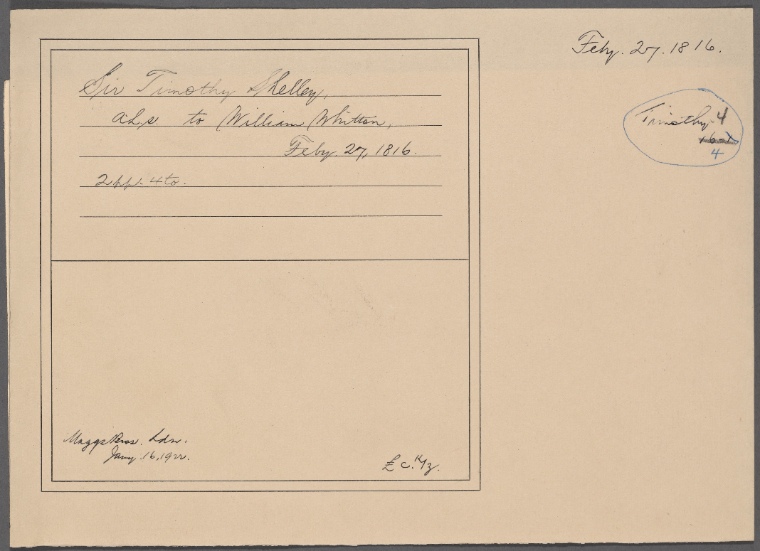 Feby. 27. 1816.
Sir Timothy Shelley,
a.l.s. to William Whitton,
Feby. 27, 1816.
2 pp. 4to.
Timothy 4
4
Maggs Bros. Ldn.
Jany. 16, 1922.
£ c.